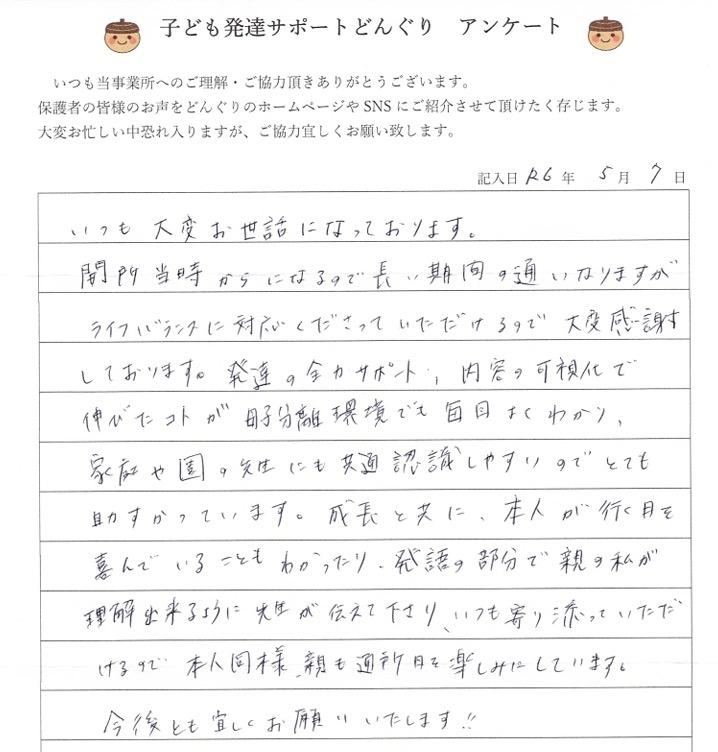 子ども発達サポートどんぐり アンケート
いつも当事業所へのご理解・ご協力頂きありがとうございます。
保護者の皆様のお声をどんぐりのホームページやSNSにご紹介させて頂けたく存じます。
大変お忙しい中恐れ入りますが、ご協力宜しくお願い致します。
記入日 R6年 5月 7日
いつも 大変お世話になっております。
開所当時からになるので長い期間の通いなりますが
ライフバランスに対応くださっていただけるので 大変感謝す
しております。発達の全力サポート、内容の可視化で
伸びたコトが母子分離環境でも毎回よくわかり、
家庭や園の先生にも共通認識しやすいのでとても
助すかっています。成長と共に、本人が行く日を
喜んでいることもわかったり、発語の部分で親の私が
理解出来るように先生が伝えて下さり、いつも寄り添っていただ
けるので 本人同様、親も通所日を楽しみにしています。
今後とも宜しくお願いいたします!!